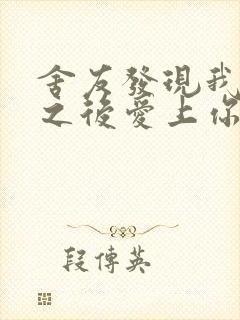 舍友發現我
之後愛上你
段傳英